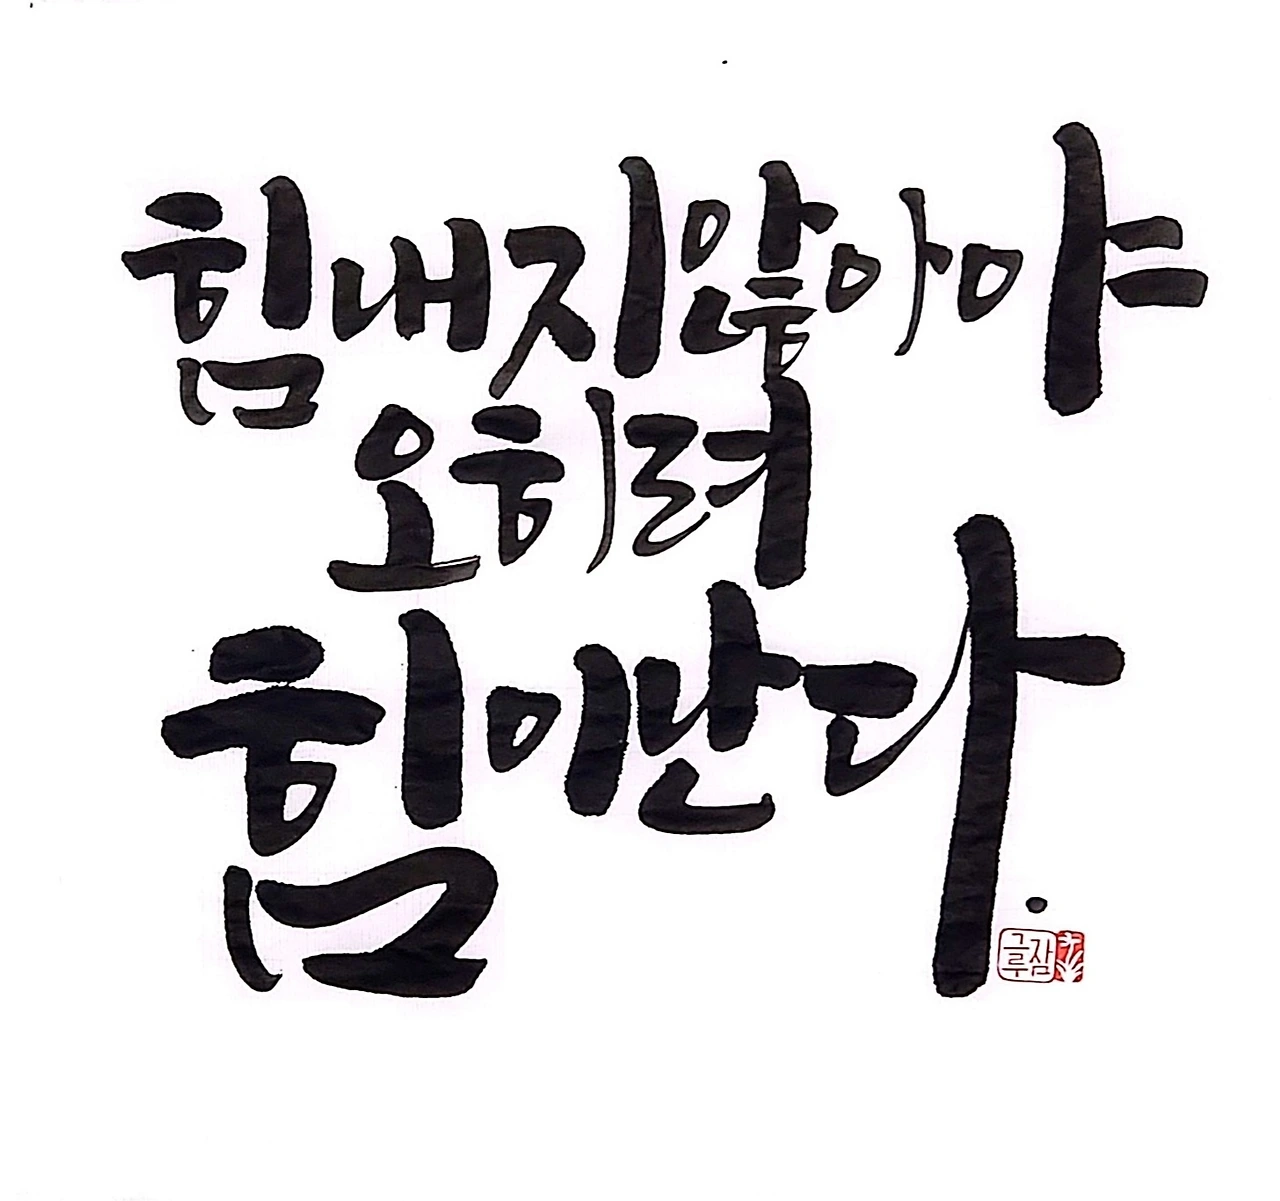 힘내지않아야
오히려
힘이난다.